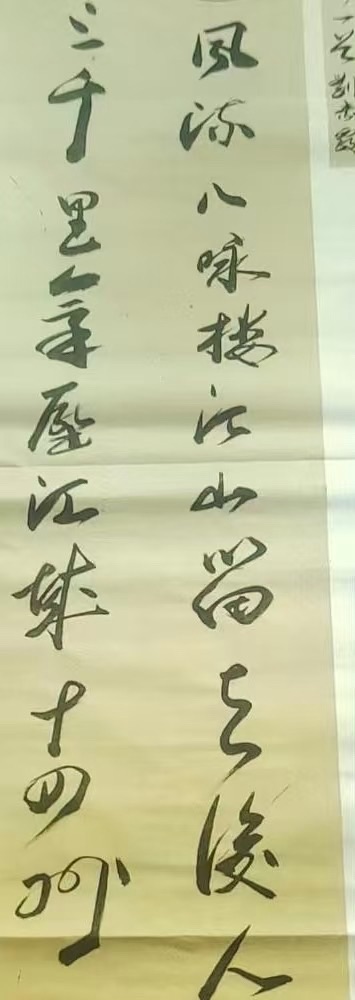 風流八咏楼江山留与後人
三千里氣壓江城十四州